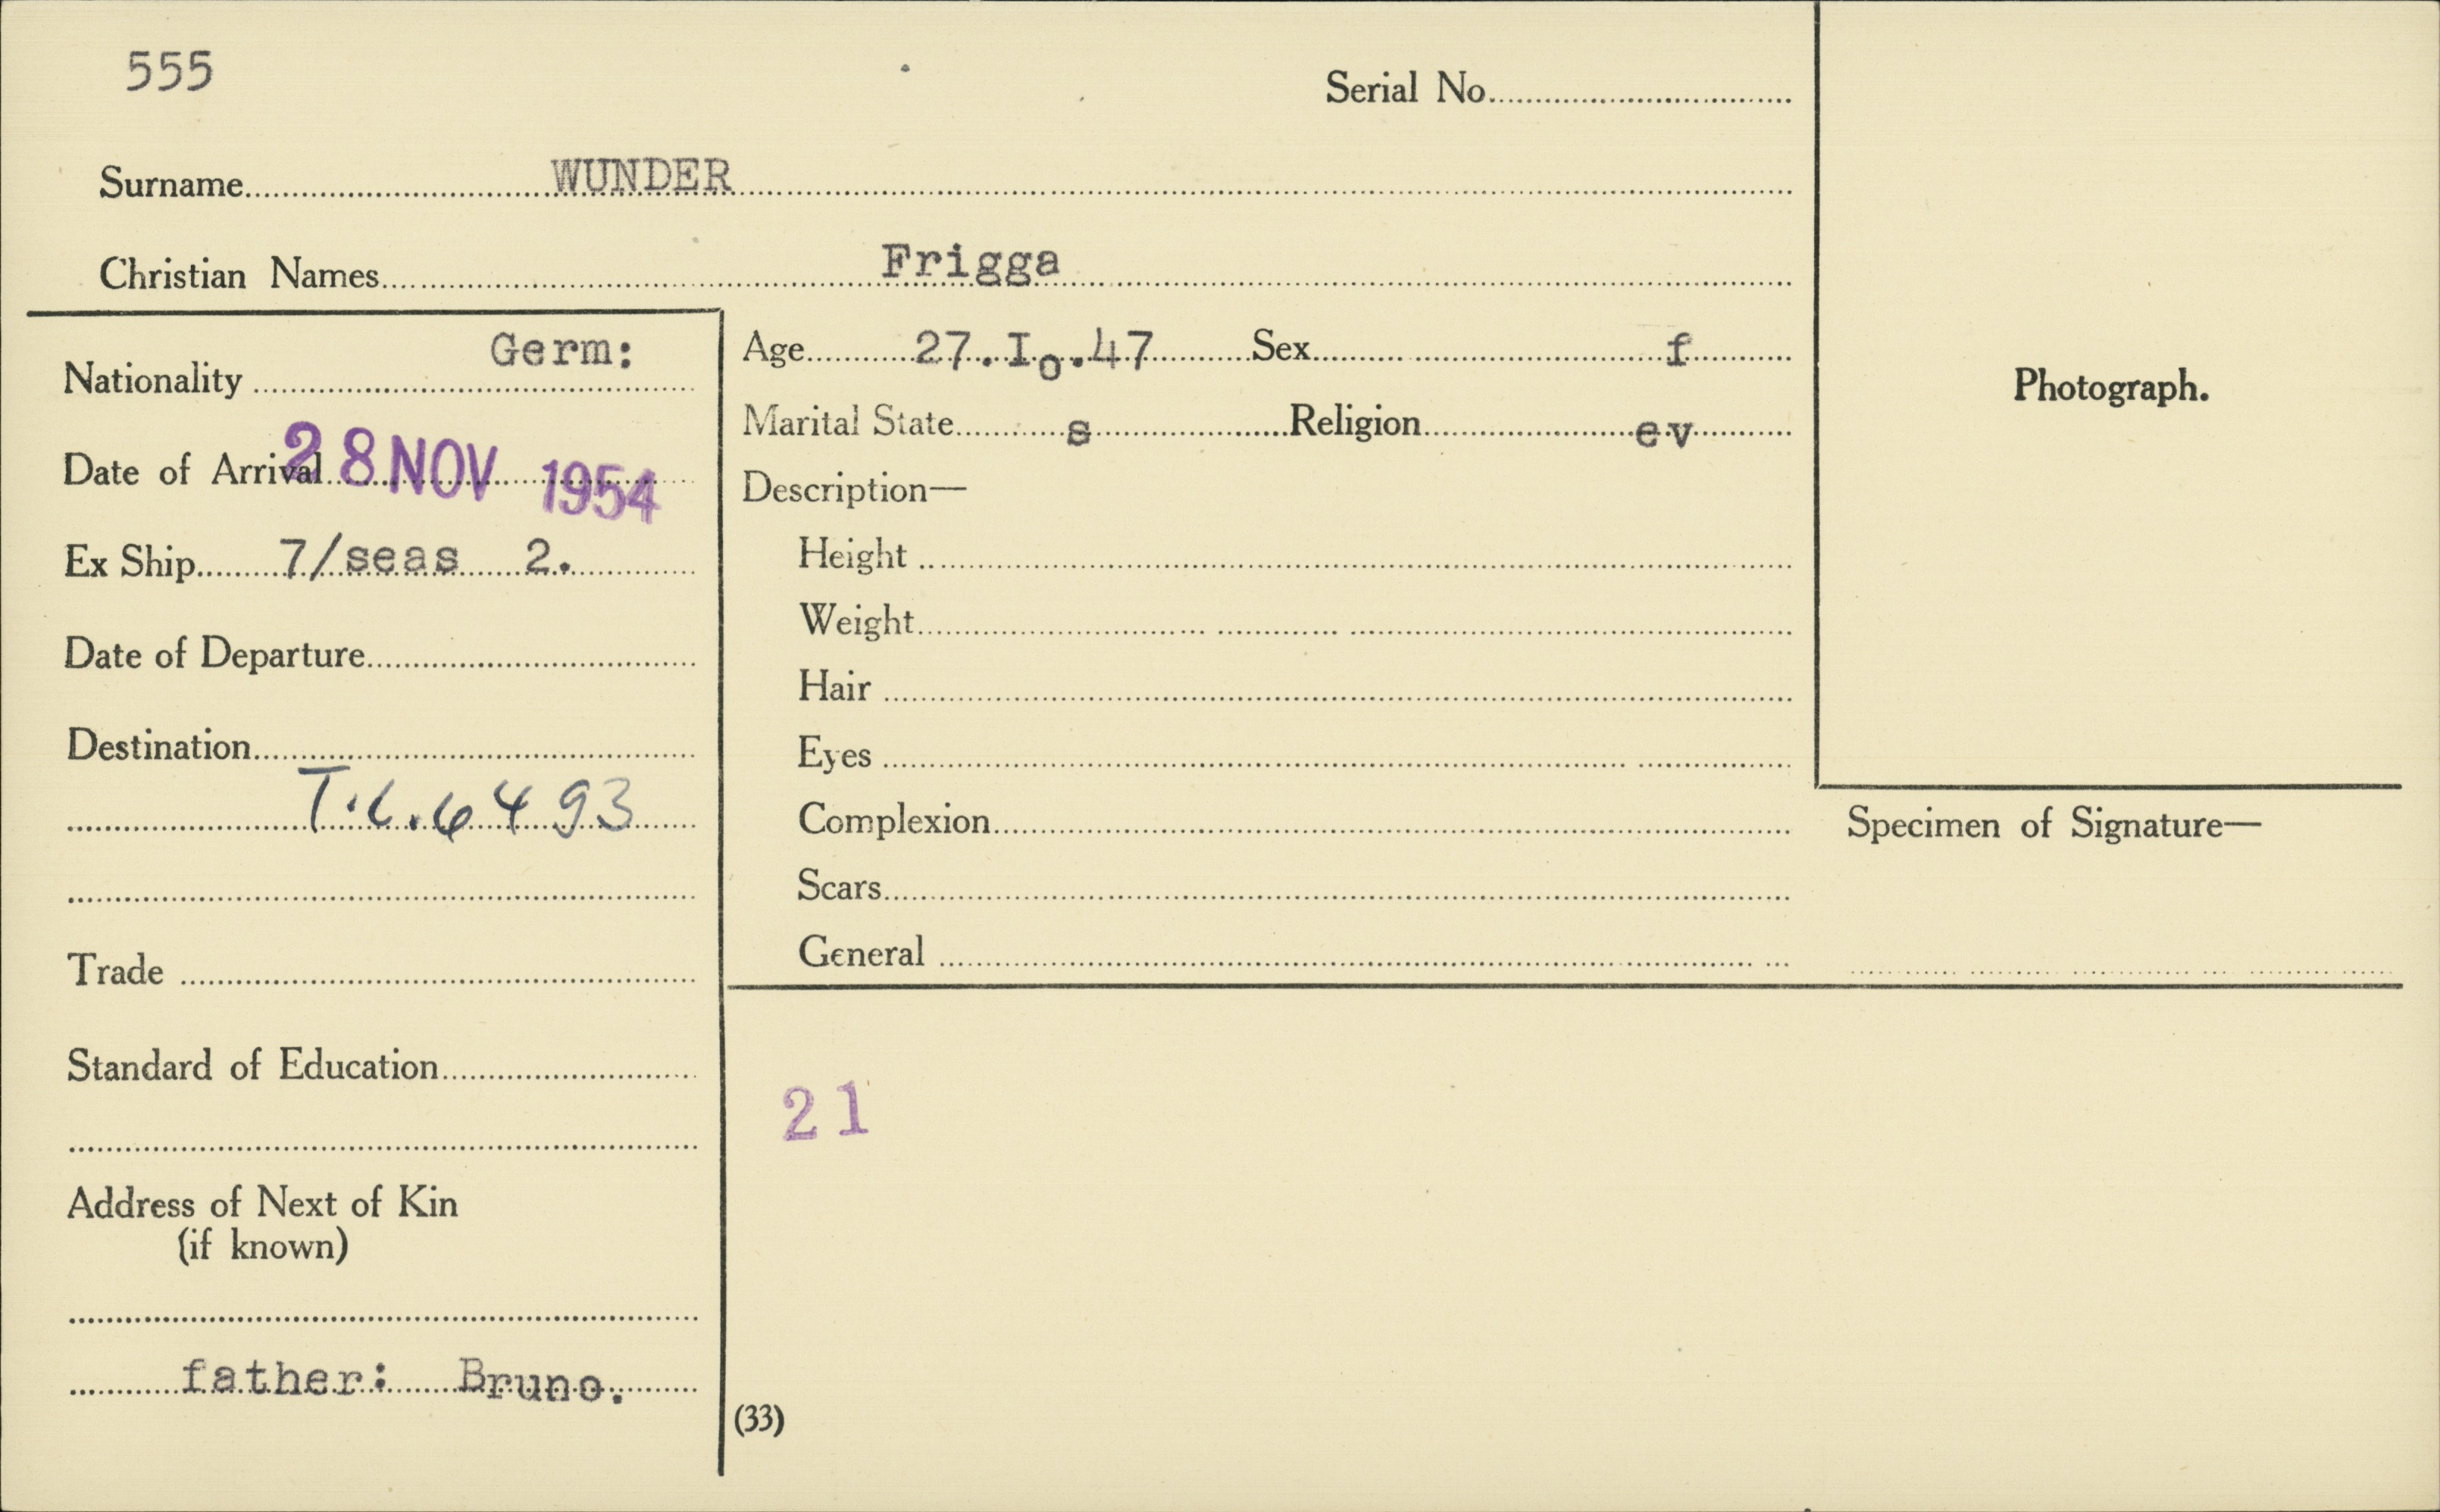 555
Serial No.
Surname WUNDER
Christian Names Frigga
Nationality Germ:
Date of Arrival 28 NOV 1954
Ex Ship 7/seas 2.
Date of Departure
Destination
T.C.6493
Trade
Standard of Education
Address of Next of Kin
(if known)
father: Bruno.
Age 27.Io.47 Sex f
Marital State s Religion ev
Description—
Height
Weight
Hair
Eyes
Complexion
Scars
General
21
(33)
Photograph.
Specimen of Signature—